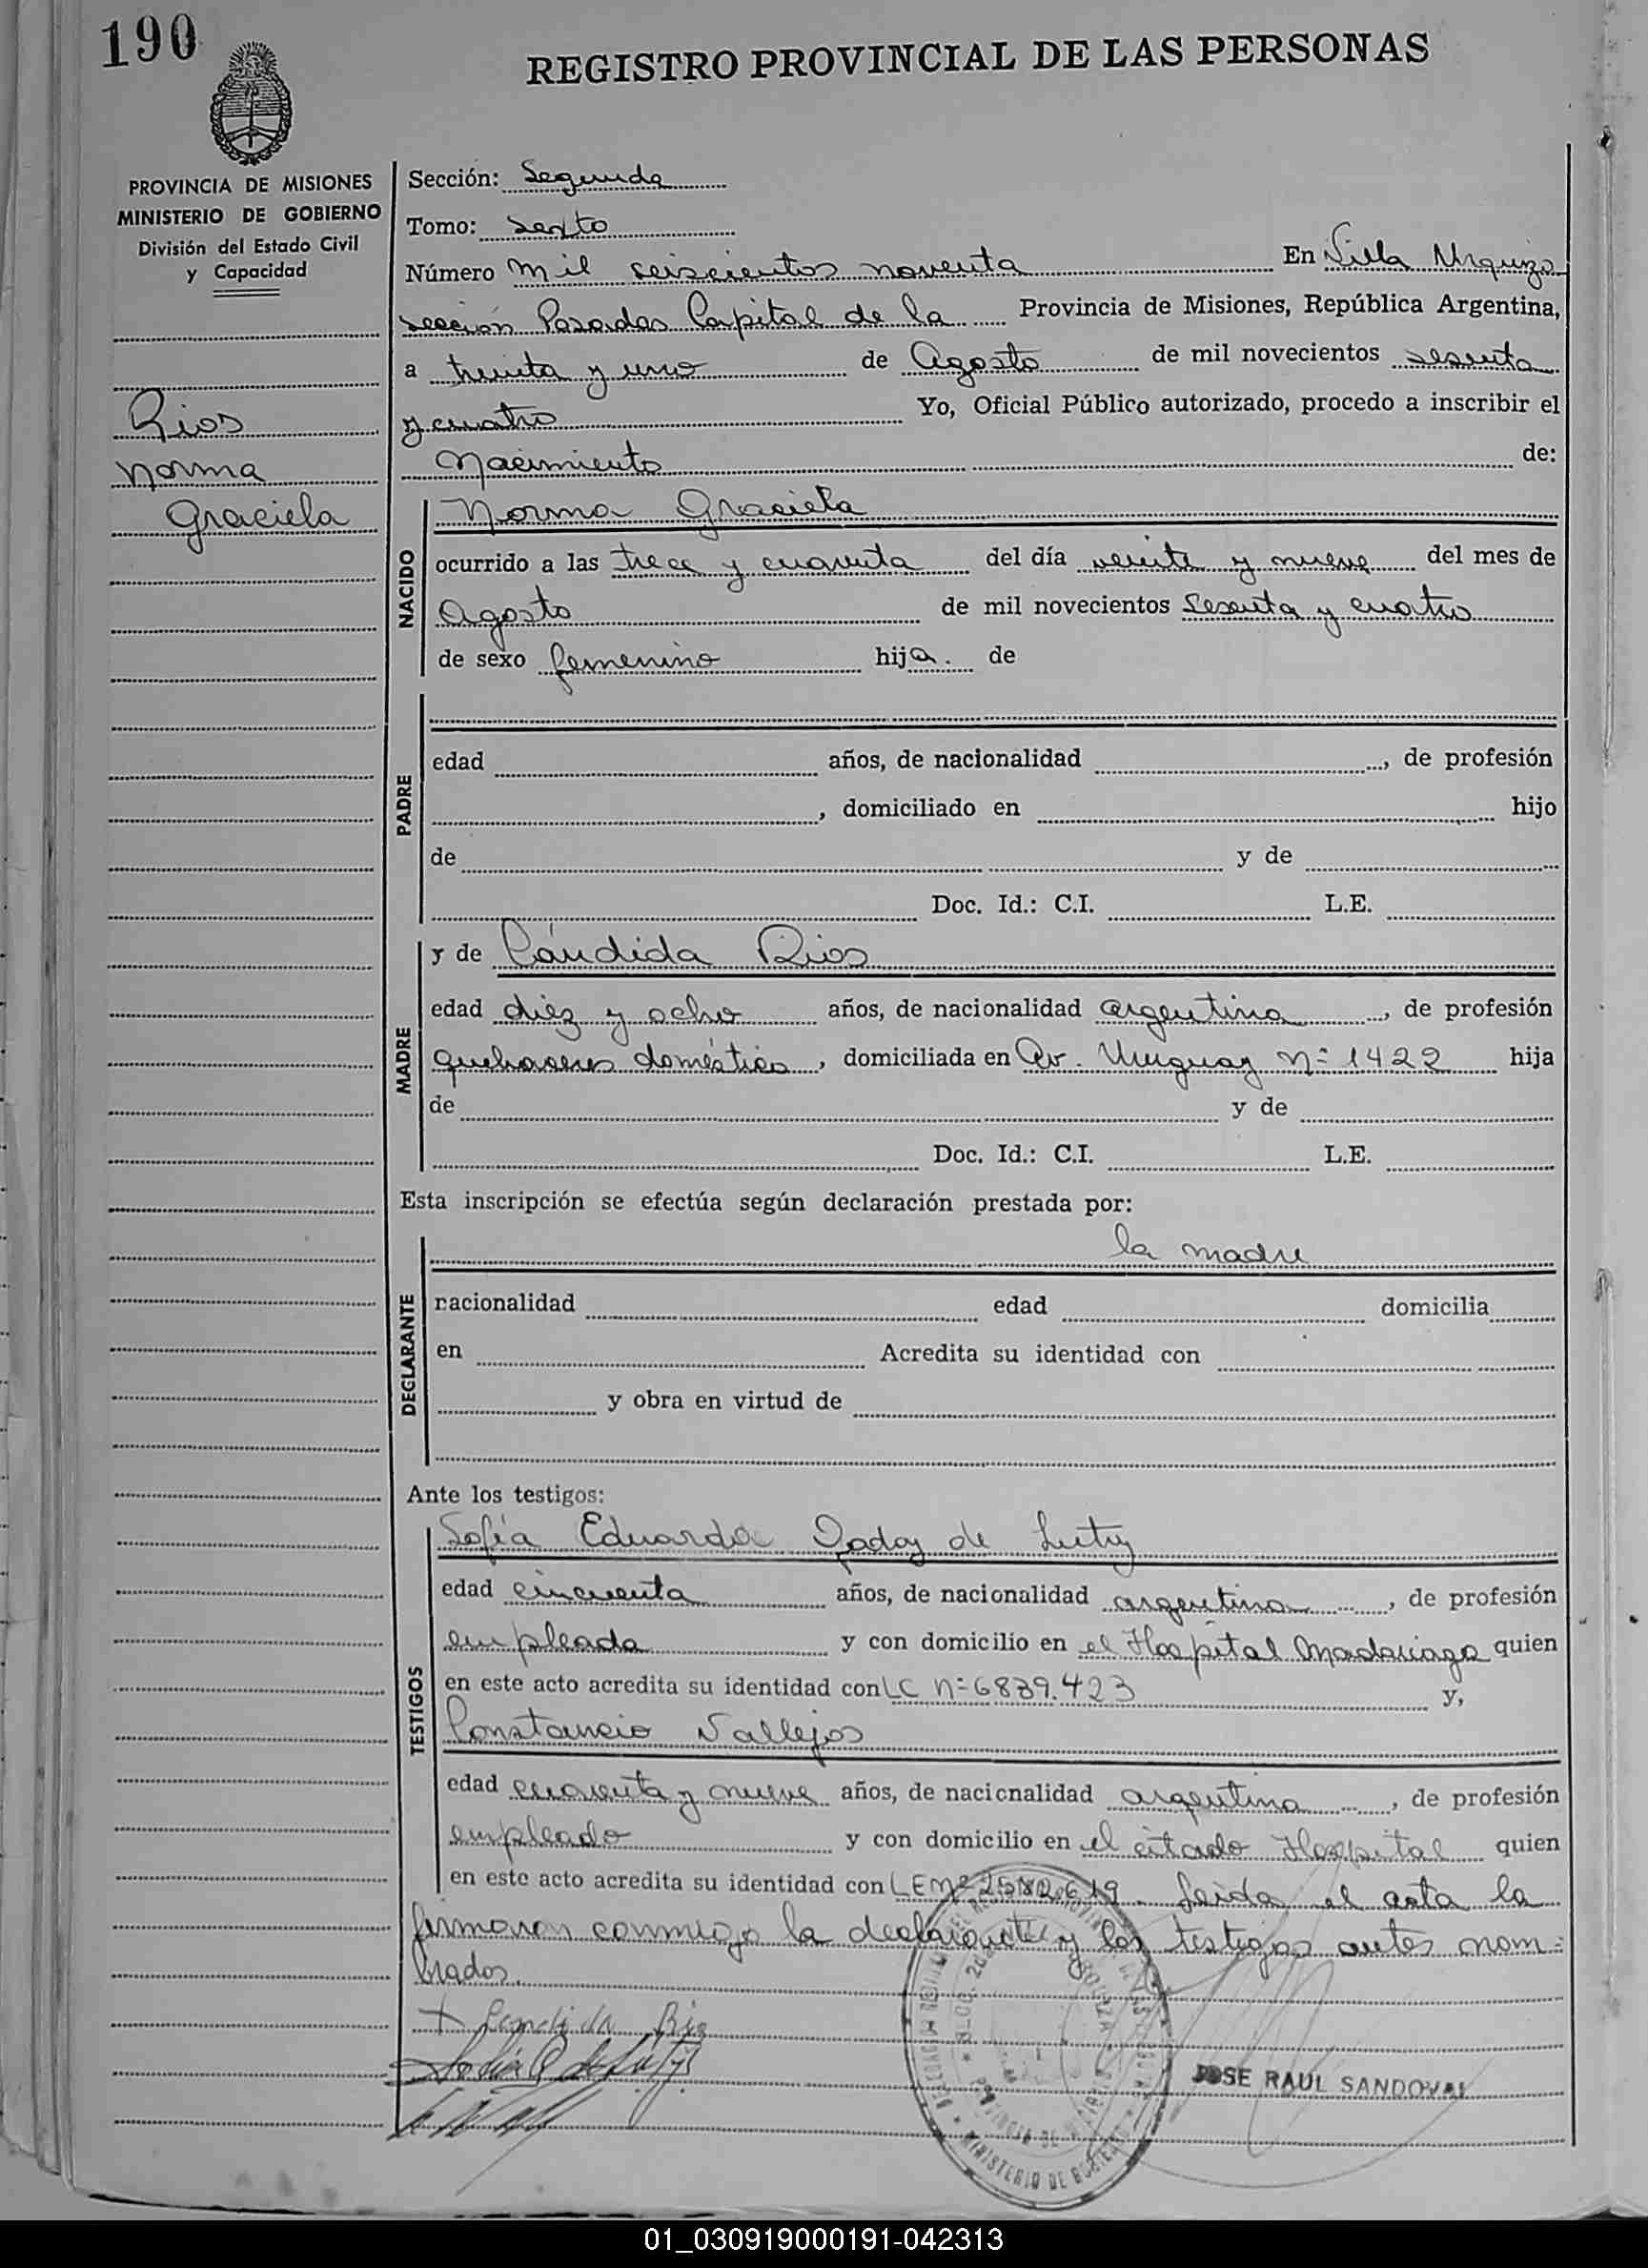 190
REGISTRO PROVINCIAL DE LAS PERSONAS
PROVINCIA DE MISIONES
MINISTERIO DE GOBIERNO
División del Estado Civil
y Capacidad
Rios
Norma
Graciela
Sección: Segunda
Tomo: Sexto
Número mil seiscientos noventa En Villa Urquiza
sección Posadas Capital de la Provincia de Misiones, República Argentina,
a treinta y uno de Agosto de mil novecientos sesenta
y cuatro Yo, Oficial Público autorizado, procedo a inscribir el
Nacimiento de:
NACIDO
Norma Graciela
ocurrido a las trece y cuarenta del día veinte y nueve del mes de
Agosto de mil novecientos sesenta y cuatro
de sexo femenino hija. de
PADRE
edad años, de nacionalidad , de profesión
, domiciliado en hijo
de y de
Doc. Id.: C.I. L.E.
MADRE
y de Cándida Rios
edad diez y ocho años, de nacionalidad argentina , de profesión
quehaceres domésticos, domiciliada en Av. Uruguay Nº 1422 hija
de y de
Doc. Id.: C.I. L.E.
Esta inscripción se efectúa según declaración prestada por:
la madre
DECLARANTE
nacionalidad edad domicilia
en Acredita su identidad con
y obra en virtud de
Ante los testigos:
TESTIGOS
Sofía Eduarda Godoy de
edad cincuenta años, de nacionalidad argentina , de profesión
empleada y con domicilio en el Hospital Madariaga quien
en este acto acredita su identidad con LC nº 6839.423 y,
Constancio Vallejos
edad cuarenta y nueve años, de nacionalidad argentina , de profesión
empleado y con domicilio en el citado Hospital quien
en este acto acredita su identidad con LE Nº 2582.619. Leída el acta la
firmaron conmigo la declarante y los testigos antes nom=
brados.
+ Candida Rios
JOSE RAUL SANDOVAL
MINISTERIO DE GOBIERNO
01_030919000191-042313